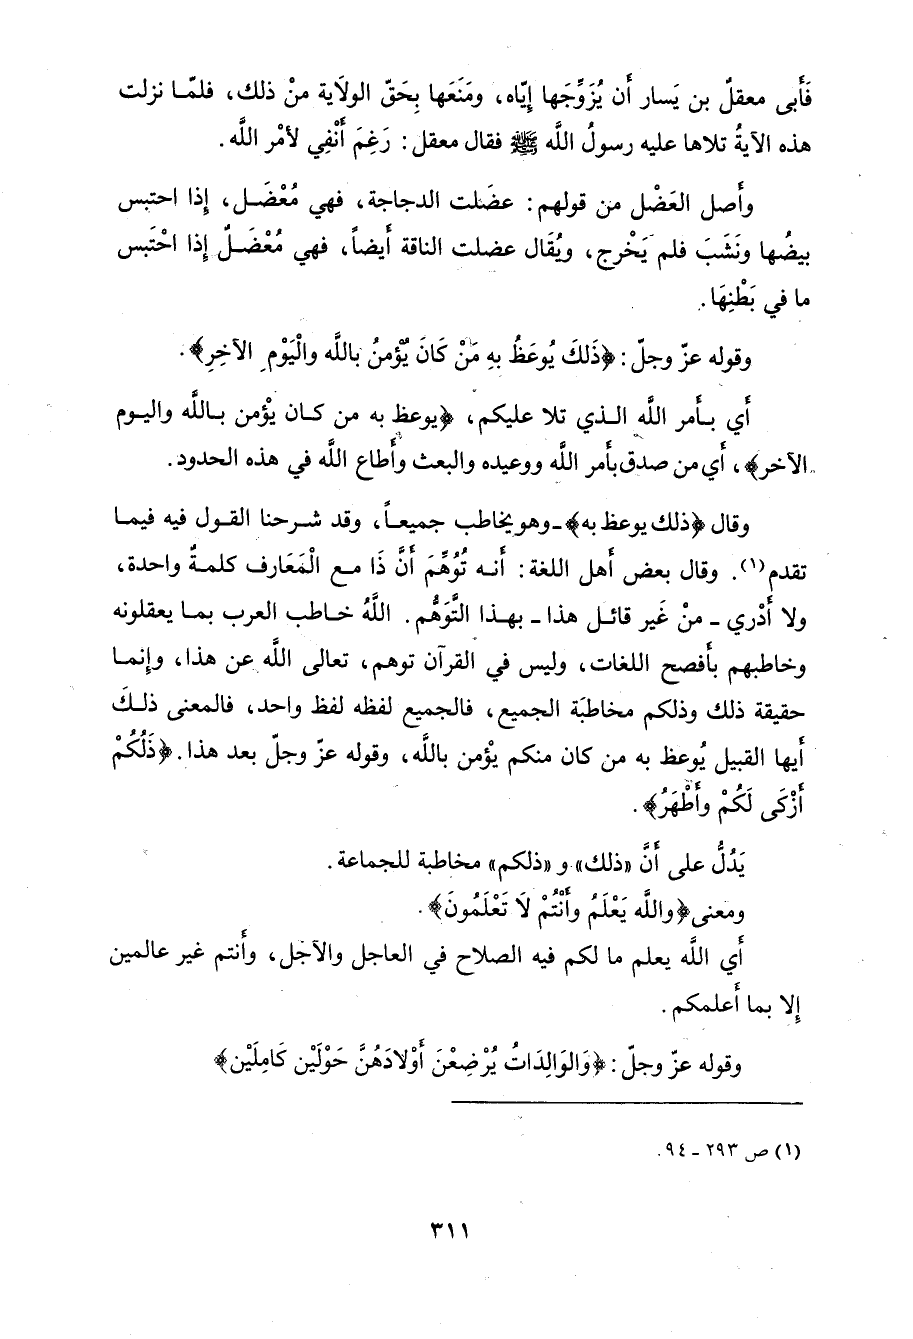 فَأَبى معقلٌ بن يَسار أَن يُزَوِّجَها إِيّاه، ومَنَعَها بِحَقّ الولَاية منْ ذلك، فلمّا نزلت
هذه الآيةُ تلاها عليه رسولُ اللَّه ﷺ فقال معقل: رَغِمَ أَنْفِي لأمْر اللَّه.
وأَصل العَضْل من قولهم: عضَلت الدجاجة، فهي مُعْضَل، إِذا احتبس
بيضُها ونَشَبَ فلم يَخْرج، ويُقَال عضلت الناقة أَيضاً، فهي مُعْضَلٌ إِذا احْتَبس
ما في بَطْنِهَا.
وقوله عزّ وجلّ: ﴿ذَلكَ يُوعَظُ به مَنْ كَانَ يُؤْمنُ باللَّه والْيَوْم الآخِرِ﴾.
أَي بأَمر اللَّه الذي تلا عليكم، ﴿يوعظ به من كان يؤمن باللَّه واليوم
الآخر﴾، أَي من صدق بأَمر اللَّه ووعيده والبعث وأَطاع اللَّه في هذه الحدود.
وقال ﴿ذلك يوعظ به﴾ - وهو يخاطب جميعاً، وقد شرحنا القول فيه فيما
تقدم(١). وقال بعض أهل اللغة: أَنه تُوُهِّمَ أَنَّ ذَا مع الْمَعَارف كلمةٌ واحدة،
ولا أَدْري - منْ غَير قائل هذا - بهذا التَّوَهُّم. اللَّهُ خاطب العرب بما يعقلونه
وخاطبهم بأَفصح اللغات، وليس في القرآن توهم، تعالى اللَّه عن هذا، وإنما
حقيقة ذلك وذلكم مخاطبَة الجميع، فالجميع لفظه لفظ واحد، فالمعنى ذلكَ
أَيها القبيل يُوعظ به من كان منكم يؤمن باللَّه، وقوله عزّ وجلّ بعد هذا. ﴿ذَلُكُمْ
أَزْكَى لَكُمْ وأَطْهَرُ﴾.
يَدُلُّ على أَنَّ «ذلك» و «ذلكم» مخاطبة للجماعة.
ومعنى ﴿واللَّه يَعْلَمُ وأَنْتُمْ لَا تَعْلَمُونَ﴾.
أَي اللَّه يعلم ما لكم فيه الصلاح في العاجل والآجل، وأَنتم غير عالمين
إِلا بما أَعلمكم.
وقوله عزّ وجلّ: ﴿وَالوَالِدَاتُ يُرْضِعْنَ أَوْلادَهُنَّ حَوْلَيْن كَامِلَيْن﴾
(١) ص ٢٩٣ - ٩٤.
٣١١